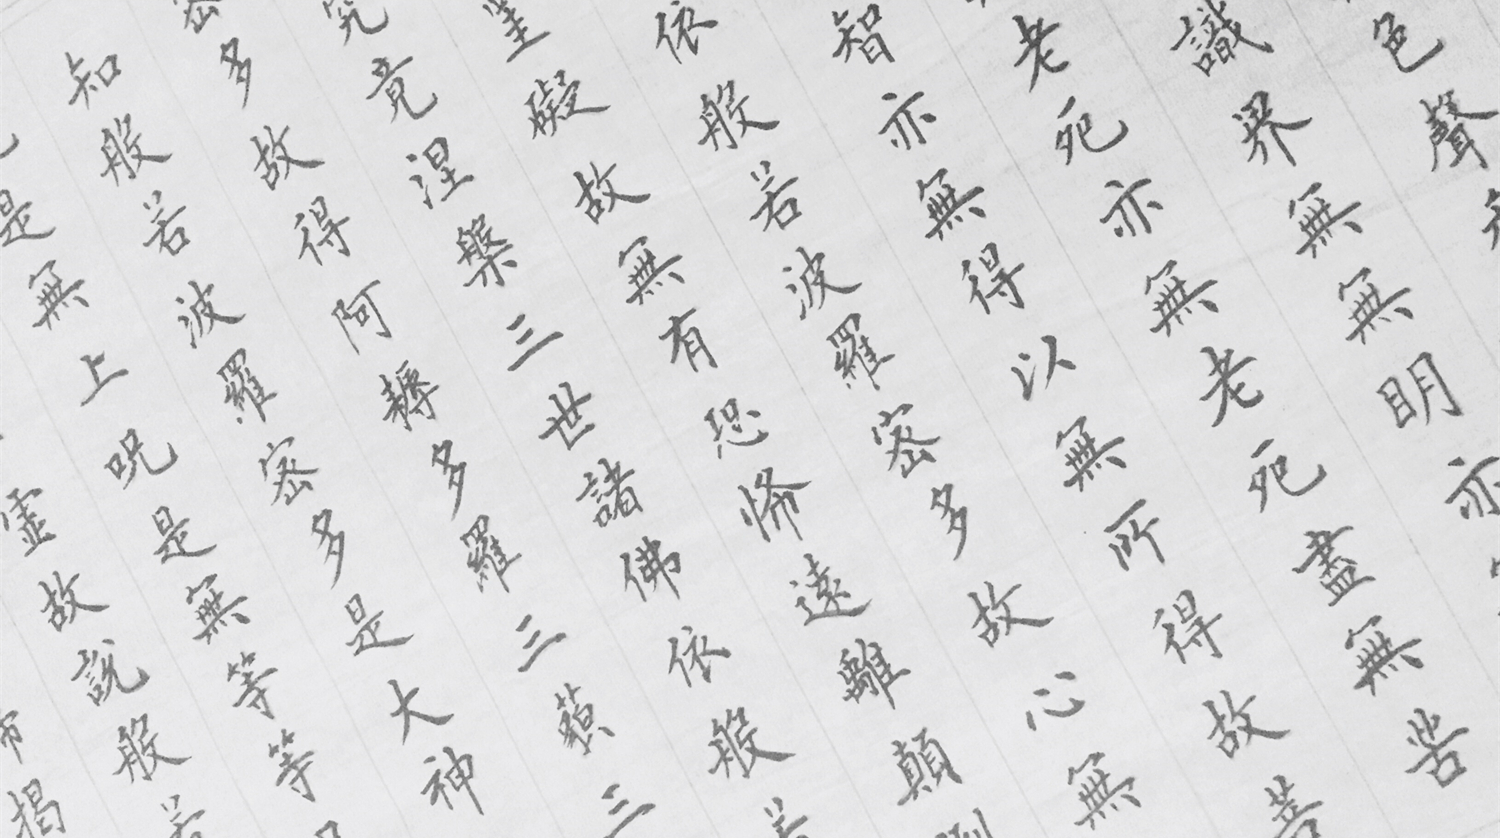 色聲
識界無無明亦
老死亦無老死盡無苦
智亦無得以無所得故菩
依般若波羅密多故心無
罣礙故無有恐怖遠離顛
究竟涅槃三世諸佛依般若
密多故得阿耨多羅三藐三
知般若波羅密多是大神
是無上呪是無等等
虛故說般若
揭